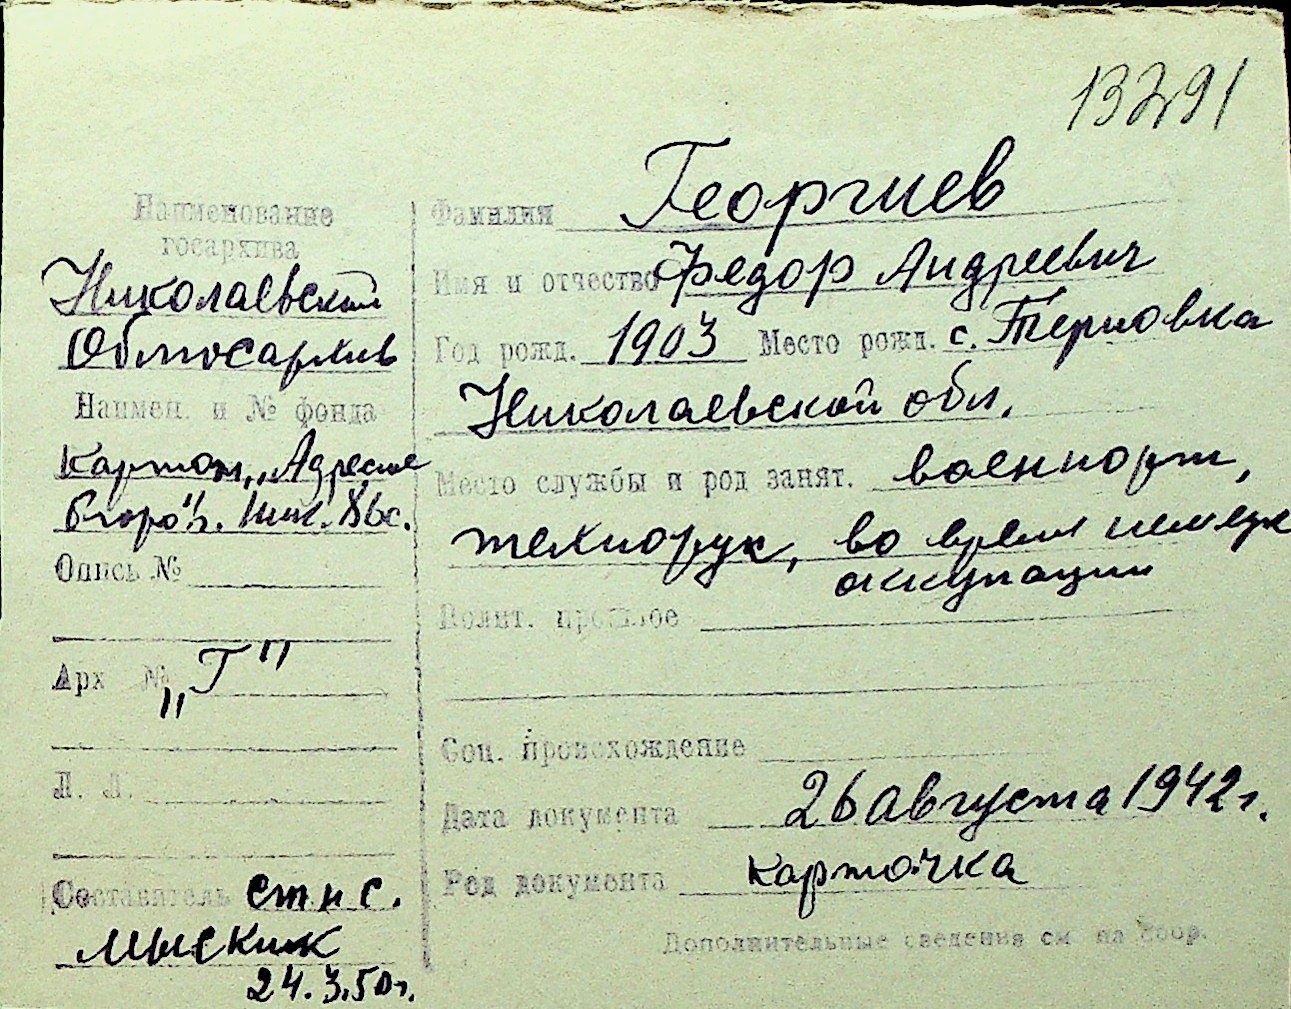 13291
Наименование
госархива
Николаевский
Облгосархив
Наимен. и № фонда
Картот. „Адресное
бюро"
Опись №
Арх № „Г"
Л. Л.
Составитель ст н с.
Мыскик
24.3.50г.
Фамилия Георгиев
Имя и отчество Федор Андреевич
Год рожд. 1903 Место рожд. с. Терновка
Николаевской обл.
Место службы и род занят. военпорт,
технорук, во время немецк
оккупации
Полит. прошлое
Соц. происхождение
Дата документа 26 августа 1942г.
Род документа карточка
Дополнительные сведения см на обор.